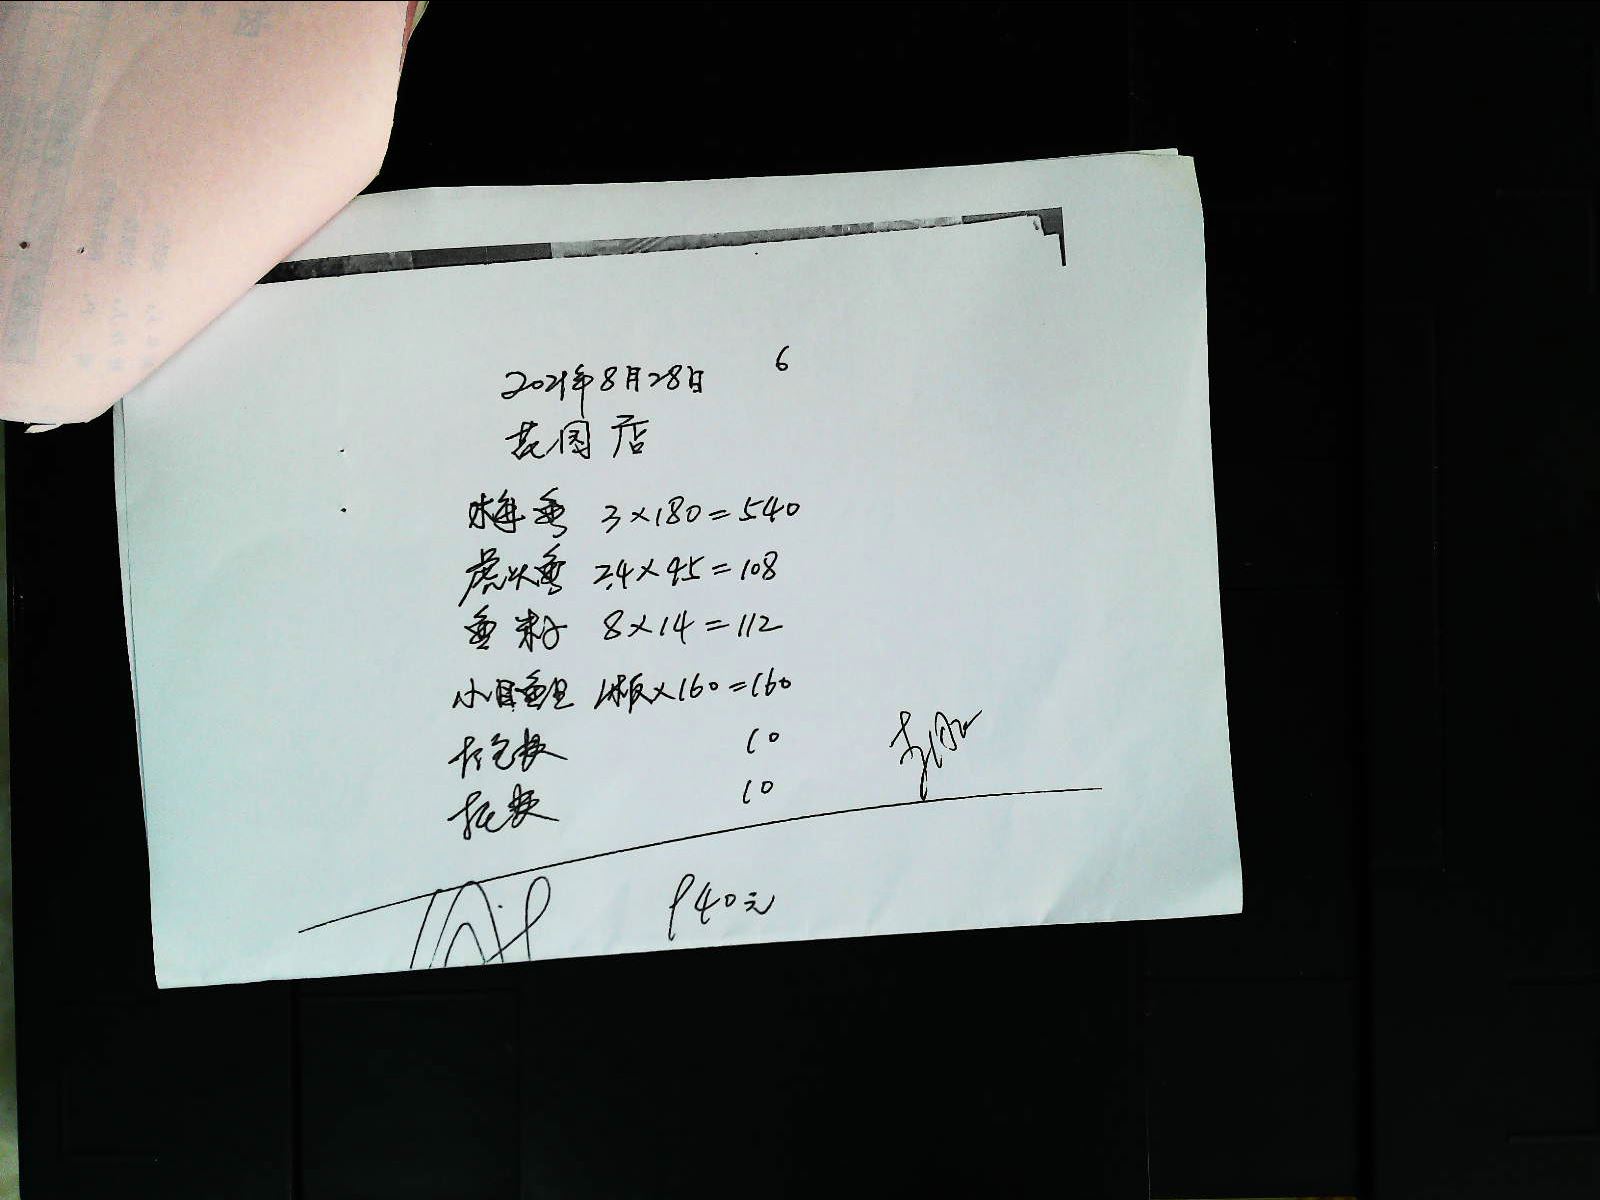 6
2021年8月28日
花园店
梅鱼 3×180=540
虎头鱼 2.4×45=108
鱼籽 8×14=112
小目鱼 1板×160=160
打包费 10
托费 10
940元